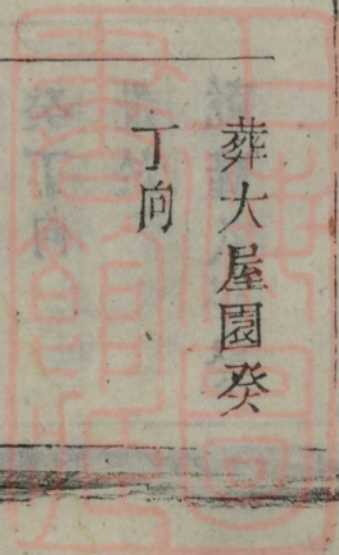 葬大屋園癸
丁向